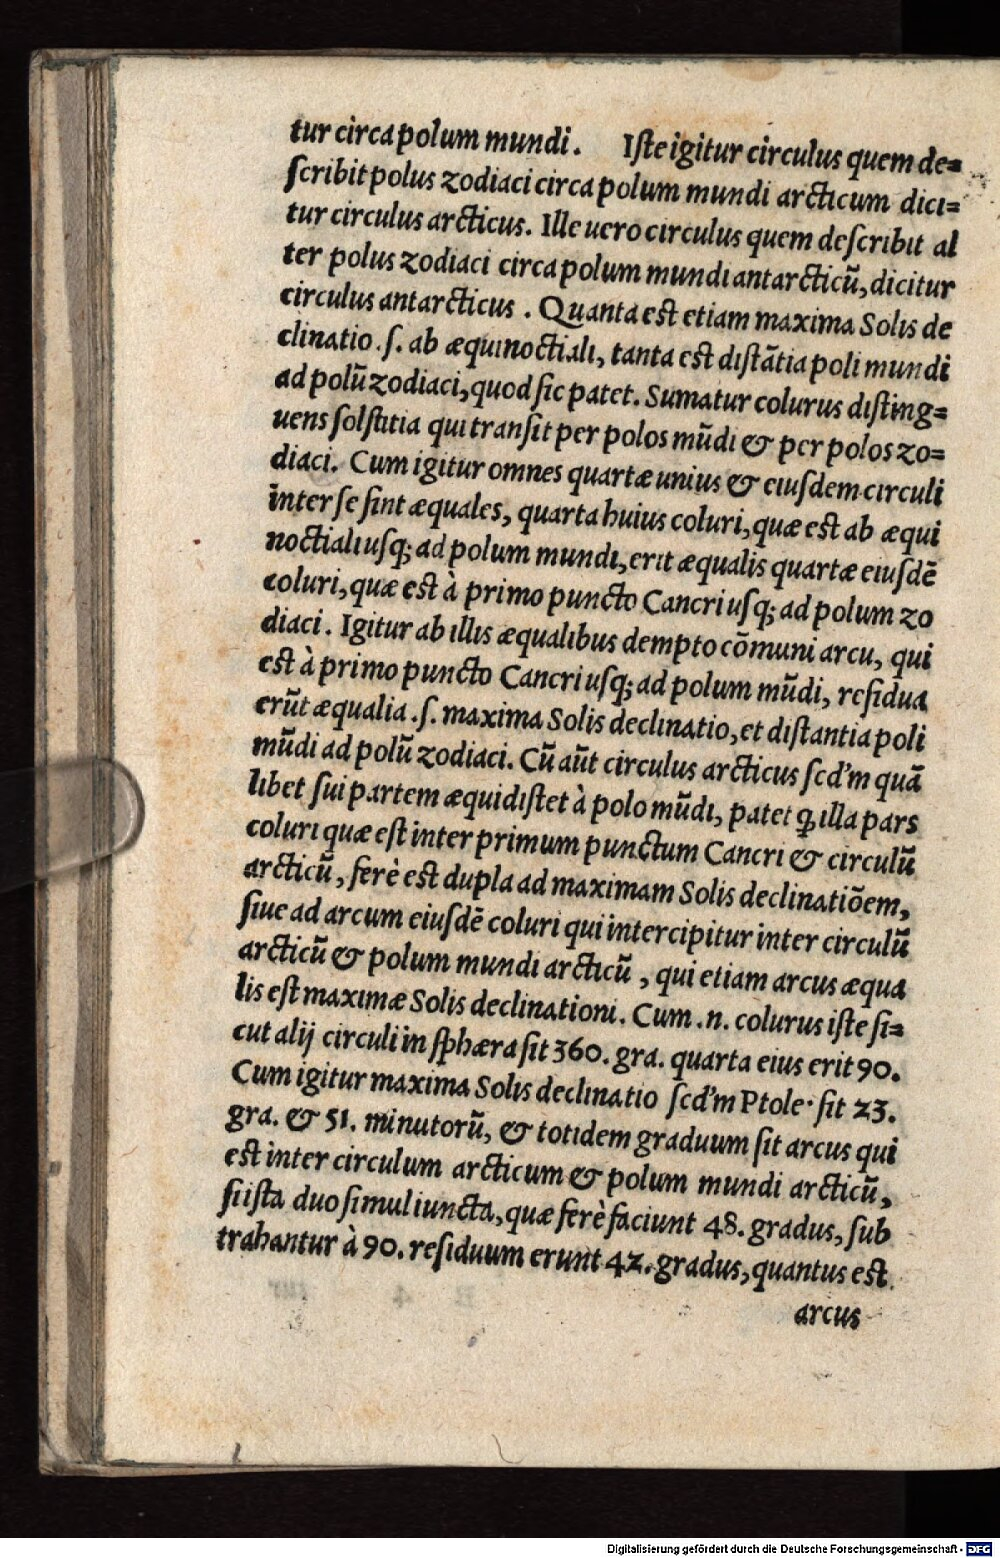 tur circa polum mundi. Iſte igitur circulus quem de=
ſcribit polus zodiaci circa polum mundi arcticum dici=
tur circulus arcticus. Ille uero circulus quem deſcribit al
ter polus zodiaci circa polum mundi antarcticū, dicitur
circulus antarcticus. Quanta est etiam maxima Solis de
clinatio .ſ. ab æquinoctiali, tanta est diſtātia poli mundi
ad polū zodiaci, quod ſic patet. Sumatur colurus diſting=
uens ſolſtitia qui tranſit per polos mūdi & per polos zo=
diaci. Cum igitur omnes quartæ unius & eiuſdem circuli
inter ſe ſint æquales, quarta huius coluri, quæ est ab æqui
noctiali uſq; ad polum mundi, erit æqualis quartæ eiuſdē
coluri, quæ est à primo puncto Cancri uſq; ad polum zo
diaci. Igitur ab illis æqualibus dempto cōmuni arcu, qui
est à primo puncto Cancri uſq; ad polum mūdi, reſidua
erūt æqualia .ſ. maxima Solis declinatio, et diſtantia poli
mūdi ad polū zodiaci. Cū aūt circulus arcticus ſcd'm quā
libet ſui partem æquidiſtet à polo mūdi, patet ꝙ illa pars
coluri quæ eſt inter primum punctum Cancri & circulū
arcticū, ferè est dupla ad maximam Solis declinatiōem,
ſiue ad arcum eiuſdē coluri qui intercipitur inter circulū
arcticū & polum mundi arcticū, qui etiam arcus æqua
lis eſt maximæ Solis declinationi. Cum .n. colurus iſte ſi=
cut alij circuli in ſphæra ſit 360. gra. quarta eius erit 90.
Cum igitur maxima Solis declinatio ſcd'm Ptole· ſit 23.
gra. & 51. minutorū, & totidem graduum ſit arcus qui
est inter circulum arcticum & polum mundi arcticū,
ſi iſta duo ſimul iuncta, quæ ferè faciunt 48. gradus, ſub
trahantur à 90. reſiduum erunt 42. gradus, quantus est
arcus
Digitalisierung gefördert durch die Deutsche Forschungsgemeinschaft - DFG